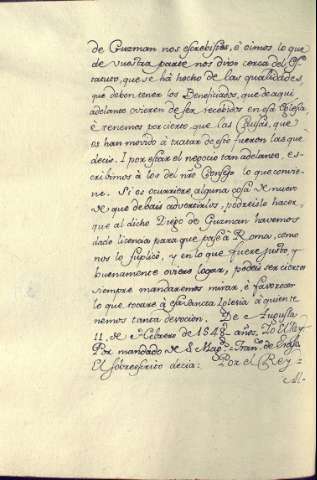 de Guzman nos escrebistes, è oimos lo que
de vuestra parte nos dixo cerca del Es-
tatuto, que se há hecho de las qualidades,
que deben tener los Beneficiados, que de aqui
adelante ovieren de ser recebidos en esa Iglesia
è tenemos por cierto que las causas, que
os han movido à tratar de esto fueron las que
decis. I por estar el negocio tan adelante, es-
cribimos à los del nro Consejo lo que convie-
ne. Si os ocurriere alguna cosa de nuevo
de que debais advertirlos, podreislo hacer,
que al dicho Diego de Guzman havemos
dado licencia para que pase à Roma, como
nos lo suplicó, y en lo que fuere justo, y
buenamente oviere lugar, podeis ser ciertos
siempre mandaremos mirar, è favorecer
lo que tocare à esa sancta Iglesia à quien te-
nemos tanta devocion. De Augusta
11. de Hebrero de 1548 años. Yo el Rey
Por mandado de S. Mag.d Fran.co de Eraso
El sobreescrito decia: Por el Rey
Al